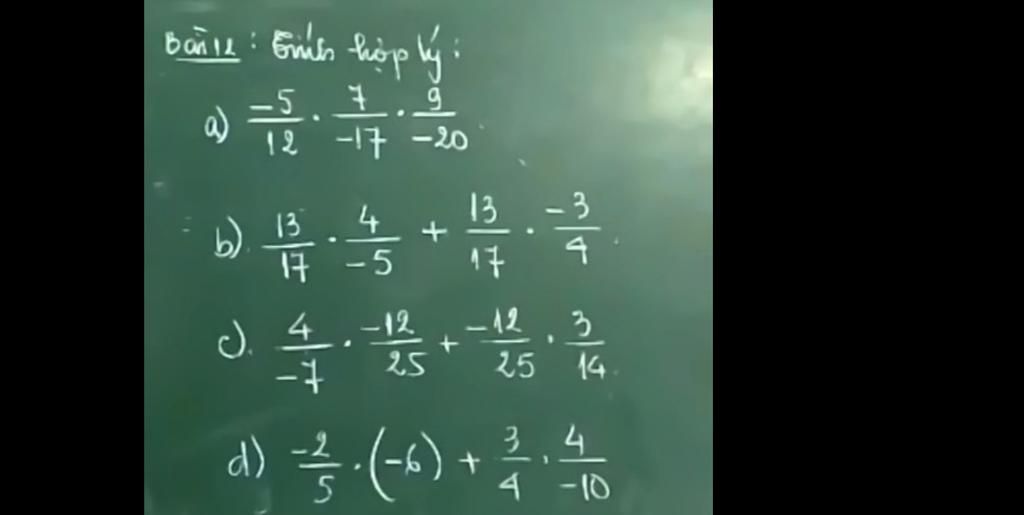 Bài 12 : Tính hợp lý :
a) \frac{-5}{12} \cdot \frac{7}{-17} \cdot \frac{9}{-20}
b). \frac{13}{17} \cdot \frac{4}{-5} + \frac{13}{17} \cdot \frac{-3}{4}.
c). \frac{4}{-7} \cdot \frac{-12}{25} + \frac{-12}{25} \cdot \frac{3}{14}.
d) \frac{-2}{5} \cdot (-6) + \frac{3}{4} \cdot \frac{4}{-10}